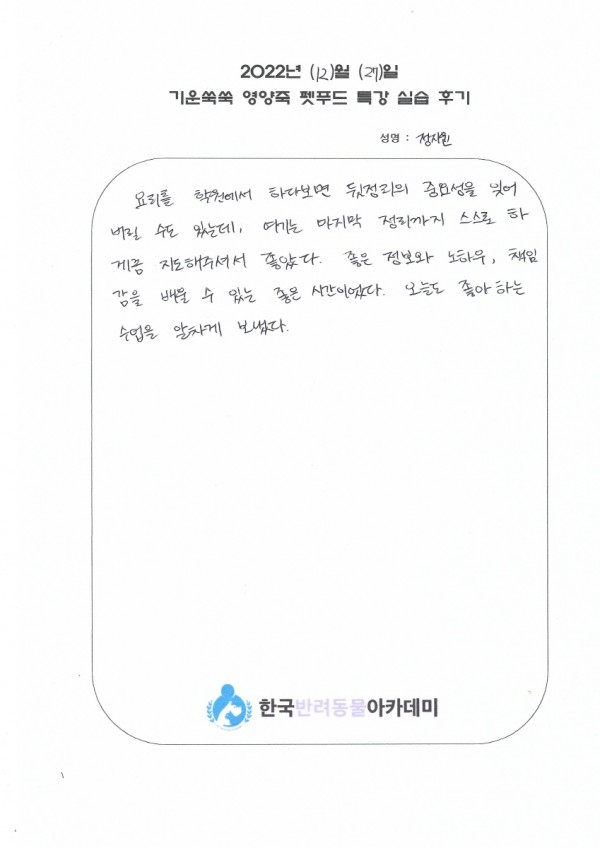 2022년 (12)월 (27)일
기운쑥쑥 영양죽 펫푸드 특강 실습 후기
성명 : 정지원
요리를 학원에서 하다보면 뒷정리의 중요성을 잊어
버릴 수도 있는데, 여기는 마지막 정리까지 스스로 하
게끔 지도해주셔서 좋았다. 좋은 정보와 노하우, 책임
감을 배울 수 있는 좋은 시간이었다. 오늘도 좋아하는
수업을 알차게 보냈다.
한국반려동물아카데미